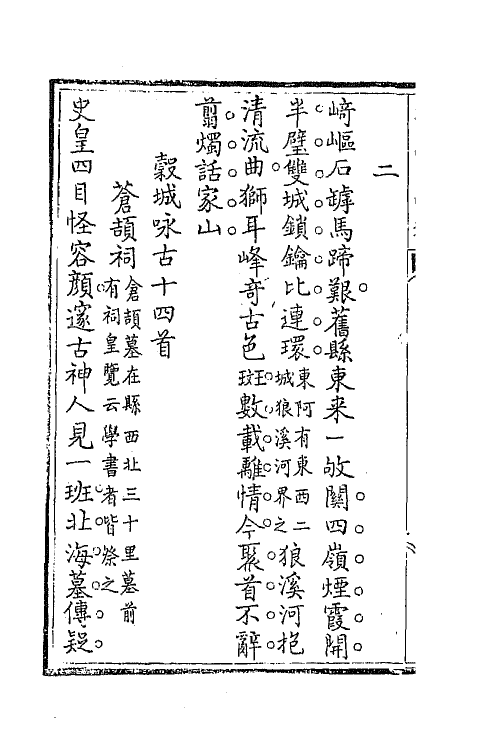 二
崎嶇石罅馬蹄艱舊縣東来一敂關四嶺煙霞開
半璧雙城鎖鑰比連環東阿有東西二城狼溪河界之狼溪河抱
清流曲獅耳峰竒古色斑數載離情今聚首不辭
翦燭話家山
穀城咏古十四首
蒼頡祠倉頡墓在縣西北三十里墓前有祠皇覽云學書者皆祭之
史皇四目怪容顔邃古神人見一班北海墓傳疑